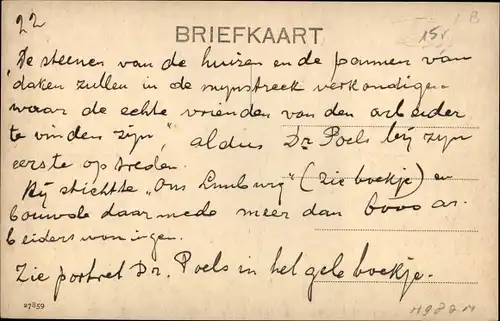 22
BRIEFKAART
15,-
B
"De steenen van de huizen en de pannen van
daken zullen in de mynstreek verkondigen
waar de echte vrienden van den arbeider
te vinden zijn", aldus Dr. Poels bij zijn
eerste optreden.
Hij stichtte "Ons Limburg" (zie boekje) en
bouwde daarmede meer dan 6000 ar-
beiderswoningen.
Zie portret Dr. Poels in het gele boekje.
27859